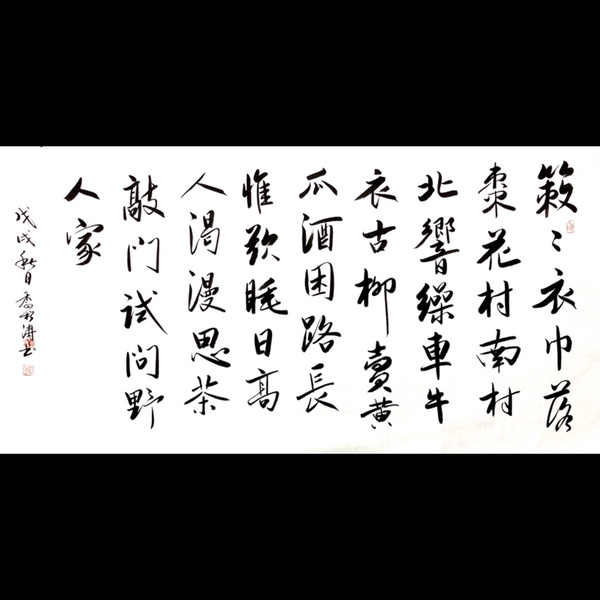 簌〻衣巾落
棗花村南村
北響繰車牛
衣古柳賣黃
瓜酒困路長
惟欲睡日高
人渴漫思茶
敲門試問野
人家
戊戌秋日喬
書